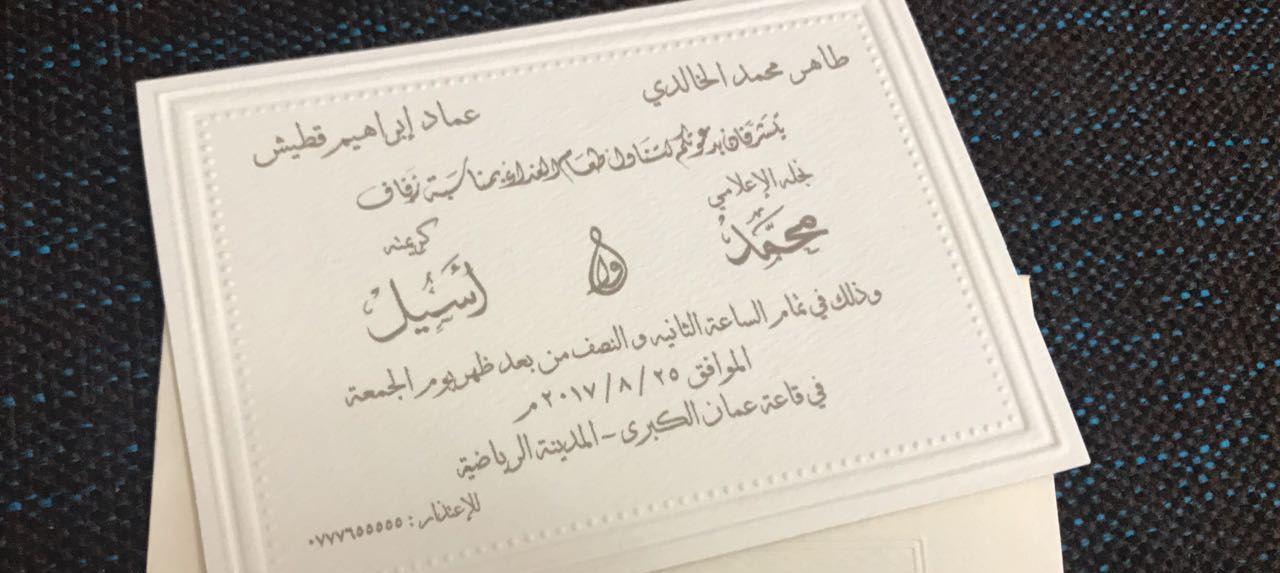 طاهر محمد الخالدي
عماد إبراهيم قطيش
يتشرفان بدعوتكم لتناول طعام الغداء بمناسبة زفاف
نجله الإعلامي
كريمته
محمد
و
أسيل
وذلك في تمام الساعة الثانيه والنصف من بعد ظهر يوم الجمعة
الموافق ٢٥ / ٨ / ٢٠١٧ م
في قاعة عمان الكبرى - المدينة الرياضية
للإعتذار : ٠٧٧٧٦٥٥٥٥٥